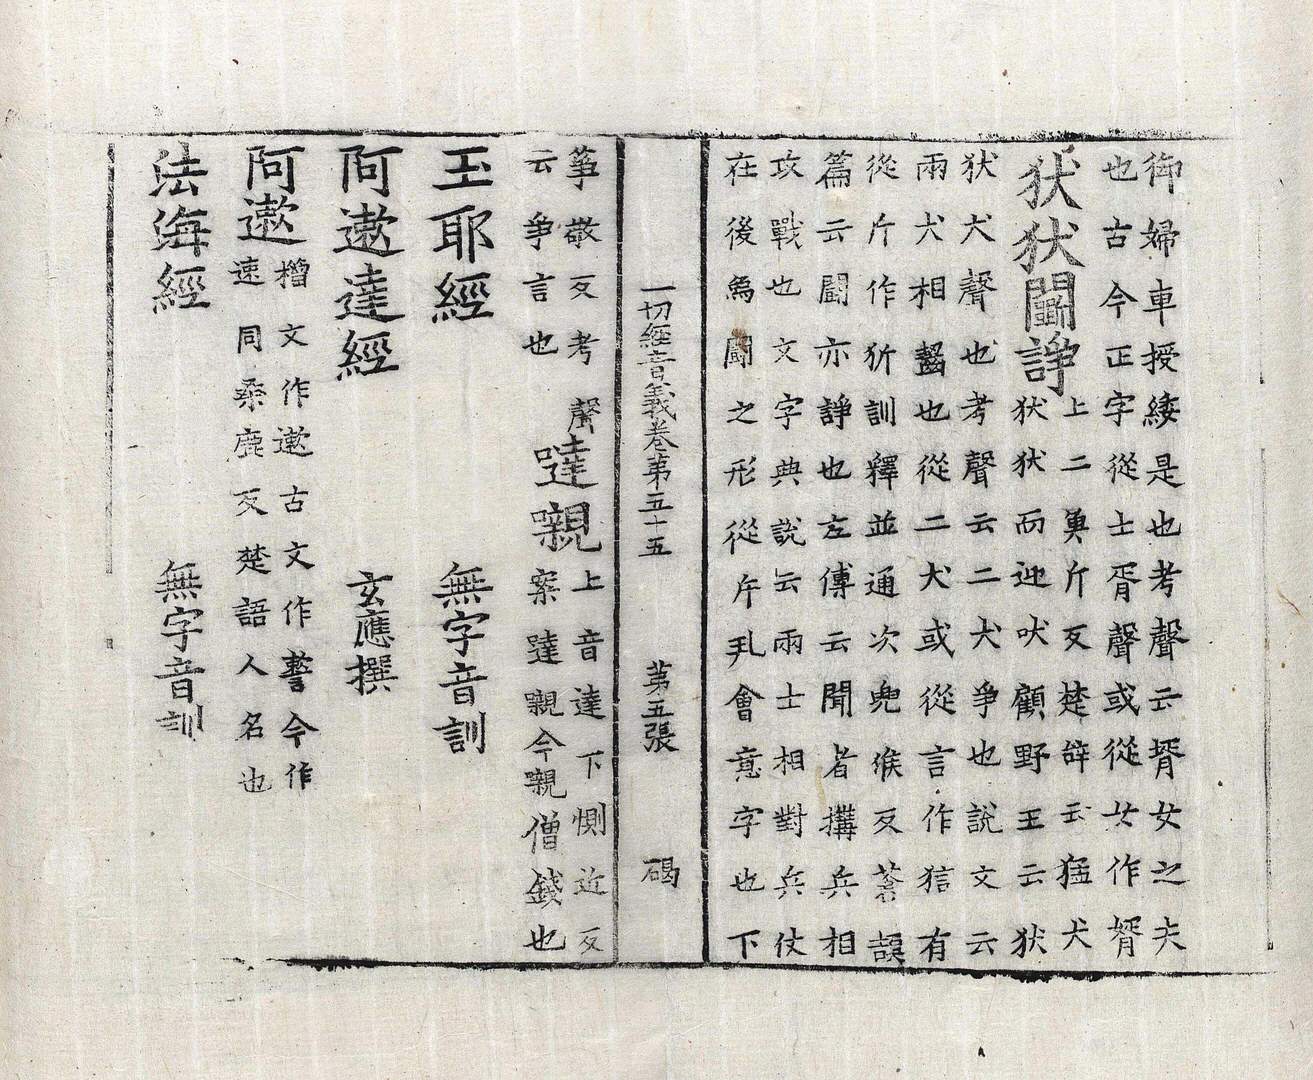 御婦車授綏是也考聲云壻女之夫
也古今正字從士胥聲或從女作婿
犾犾鬭諍
上二魚斤反楚辭云猛犬
犾犾而迎吠顧野王云犾
犾犬聲也考聲云二犬爭也說文云
兩犬相齧也從二犬或從言作狺有
從斤作㹞訓釋並通次兜候反蒼頡
篇云鬭亦諍也左傳云聞者搆兵相
攻戰也文字典說云兩士相對兵仗
在後為鬭之形從丮會意字也下
一切經音義卷第五十五 第五張 碣
箏敬反考聲
云爭言也
噠嚫
上音達下惻近反
案躂嚫今嚫僧錢也
玉耶經 無字音訓
阿遬達經 玄應撰
阿遬
文作遬古文作今作
速同桑鹿反楚語人名也
法海經 無字音訓